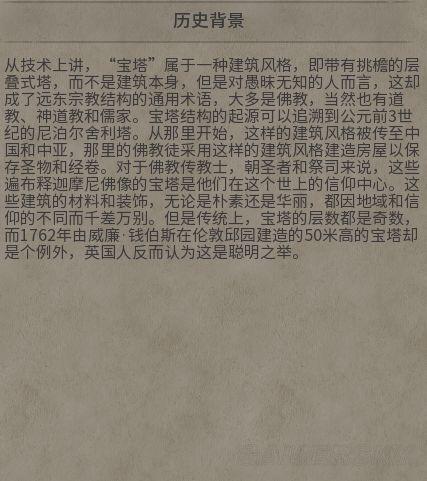 历史背景
从技术上讲，“宝塔”属于一种建筑风格，即带有挑檐的层
叠式塔，而不是建筑本身，但是对愚昧无知的人而言，这却
成了远东宗教结构的通用术语，大多是佛教，当然也有道
教、神道教和儒家。宝塔结构的起源可以追溯到公元前3世
纪的尼泊尔舍利塔。从那里开始，这样的建筑风格被传至中
国和中亚，那里的佛教徒采用这样的建筑风格建造房屋以保
存圣物和经卷。对于佛教传教士，朝圣者和祭司来说，这些
遍布释迦摩尼佛像的宝塔是他们在这个世上的信仰中心。这
些建筑的材料和装饰，无论是朴素还是华丽，都因地域和信
仰的不同而千差万别。但是传统上，宝塔的层数都是奇数，
而1762年由威廉·钱伯斯在伦敦邱园建造的50米高的宝塔却
是个例外，英国人反而认为这是聪明之举。